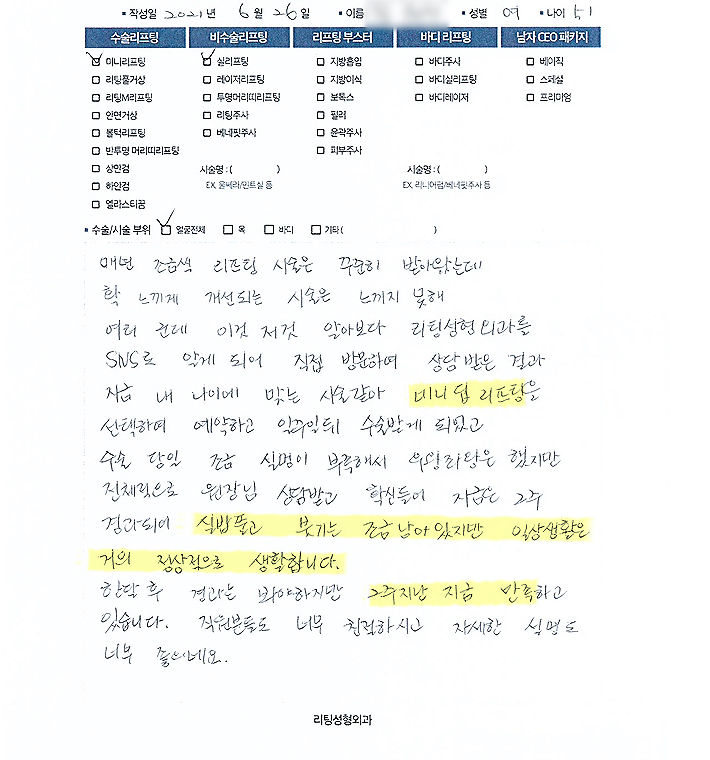 작성일 2021년 6월 26일 이름 성별 여 나이 51
수술리프팅 비수술리프팅 리프팅 부스터 바디 리프팅 남자 CEO 패키지
미니리프팅 실리프팅 지방흡입 바디주사 베이직
리팅풀거상 레이저리프팅 지방이식 바디실리프팅 스페셜
리팅M리프팅 투명머리띠리프팅 보톡스 바디레이저 프리미엄
안면거상 리팅주사 필러
볼턱리프팅 베네핏주사 윤곽주사
반투명 머리띠리프팅 피부주사
상안검 시술명 : ( ) 시술명 : ( )
하안검 EX. 울쎄라/민트실 등 EX. 리니어펌/베네핏주사 등
엘라스티꿈
수술/시술 부위 얼굴전체 목 바디 기타 ( )
매년 조금씩 리프팅 시술은 꾸준히 받아왔는데
확 느끼게 개선되는 시술은 느끼지 못해
여러 군데 이것 저것 알아보다 리팅성형외과를
SNS로 알게 되어 직접 방문하여 상담 받은 결과
지금 내 나이에 맞는 시술같아 미니 딥 리프팅을
선택하여 예약하고 일주일뒤 수술받게 되었고
수술 당일 조금 설명이 부족해서 했지만
전체적으로 원장님 상담받고 확신들어 지금은 2주
경과되어 실밥풀고 붓기는 조금 남아 있지만 일상생활은
거의 정상적으로 생활합니다.
한달 후 경과는 봐야하지만 2주지난 지금 만족하고
있습니다. 직원분들도 너무 친절하시고 자세한 설명도
너무 좋으네요.
리팅성형외과